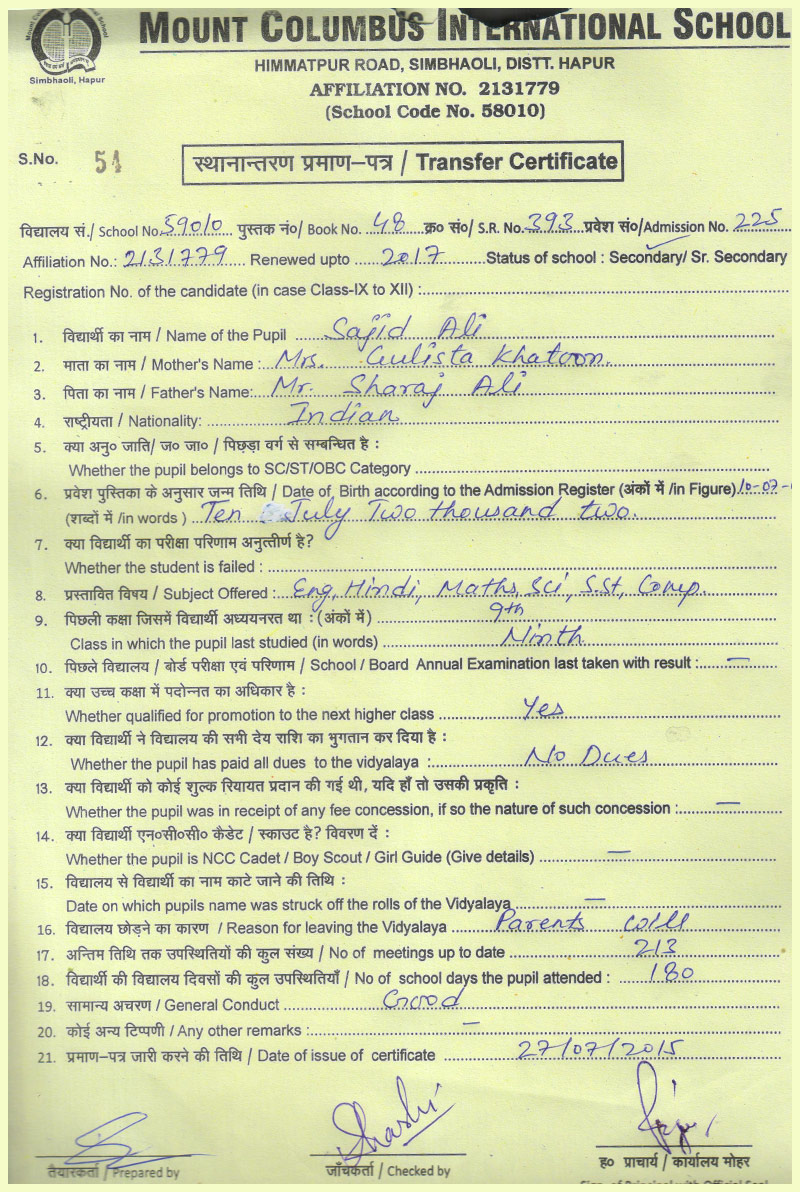 MOUNT COLUMBUS INTERNATIONAL SCHOOL
Simbhaoli, Hapur
HIMMATPUR ROAD, SIMBHAOLI, DISTT. HAPUR
AFFILIATION NO. 2131779
(School Code No. 58010)
S.No. 54
स्थानान्तरण प्रमाण–पत्र / Transfer Certificate
विद्यालय सं./ School No. 59010 पुस्तक नं०/ Book No. 48 क्र० सं०/ S.R. No. 393 प्रवेश सं०/Admission No. 225
Affiliation No.: 2131779 Renewed upto 2017 Status of school : Secondary/ Sr. Secondary
Registration No. of the candidate (in case Class-IX to XII) :
1. विद्यार्थी का नाम / Name of the Pupil Sajid Ali
2. माता का नाम / Mother's Name : Mrs. Gulista Khatoon.
3. पिता का नाम / Father's Name: Mr. Sharaj Ali
4. राष्ट्रीयता / Nationality: Indian
5. क्या अनु० जाति/ ज० जा० / पिछड़ा वर्ग से सम्बन्धित है :
Whether the pupil belongs to SC/ST/OBC Category
6. प्रवेश पुस्तिका के अनुसार जन्म तिथि / Date of Birth according to the Admission Register (अंकों में /in Figure) 10-07-
(शब्दों में /in words ) Ten July Two thousand two.
7. क्या विद्यार्थी का परीक्षा परिणाम अनुत्तीर्ण है?
Whether the student is failed :
8. प्रस्तावित विषय / Subject Offered : Eng, Hindi, Maths, Sci, S.St, Comp.
9. पिछली कक्षा जिसमें विद्यार्थी अध्ययनरत था : (अंकों में) 9th
Class in which the pupil last studied (in words) Ninth
10. पिछले विद्यालय / बोर्ड परीक्षा एवं परिणाम / School / Board Annual Examination last taken with result : —
11. क्या उच्च कक्षा में पदोन्नत का अधिकार है :
Whether qualified for promotion to the next higher class Yes
12. क्या विद्यार्थी ने विद्यालय की सभी देय राशि का भुगतान कर दिया है :
Whether the pupil has paid all dues to the vidyalaya : No Dues
13. क्या विद्यार्थी को कोई शुल्क रियायत प्रदान की गई थी, यदि हाँ तो उसकी प्रकृति :
Whether the pupil was in receipt of any fee concession, if so the nature of such concession : —
14. क्या विद्यार्थी एन०सी०सी० कैडेट / स्काउट है? विवरण दें :
Whether the pupil is NCC Cadet / Boy Scout / Girl Guide (Give details) —
15. विद्यालय से विद्यार्थी का नाम काटे जाने की तिथि :
Date on which pupils name was struck off the rolls of the Vidyalaya —
16. विद्यालय छोड़ने का कारण / Reason for leaving the Vidyalaya Parents will
17. अन्तिम तिथि तक उपस्थितियों की कुल संख्य / No of meetings up to date 213
18. विद्यार्थी की विद्यालय दिवसों की कुल उपस्थितियाँ / No of school days the pupil attended : 180
19. सामान्य अचरण / General Conduct Good
20. कोई अन्य टिप्पणी / Any other remarks : —
21. प्रमाण–पत्र जारी करने की तिथि / Date of issue of certificate 27/07/2015
Shashi
तैयारकर्ता / Prepared by जाँचकर्ता / Checked by ह० प्राचार्य / कार्यालय मोहर